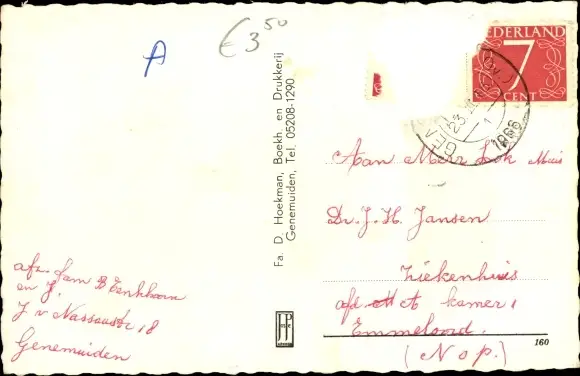 A
€ 3⁵⁰
NEDERLAND
7
CENT
23
1
1966
Fa. D. Hoekman, Boekh en Drukkerij
Genemuiden, Tel. 05208-1290
Aan Mevr
Dr. J. H. Jansen
Ziekenhuis
afd A kamer 1
Emmeloord.
(Nop.)
afz. fam B Eenkhoorn
en J.
J v Nassaustr 18
Genemuiden
JP
160